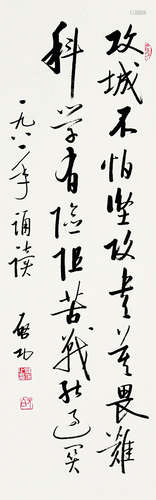 攻城不怕坚攻书莫畏难
科学有险阻苦战能过关
一九八一年诵读
启功